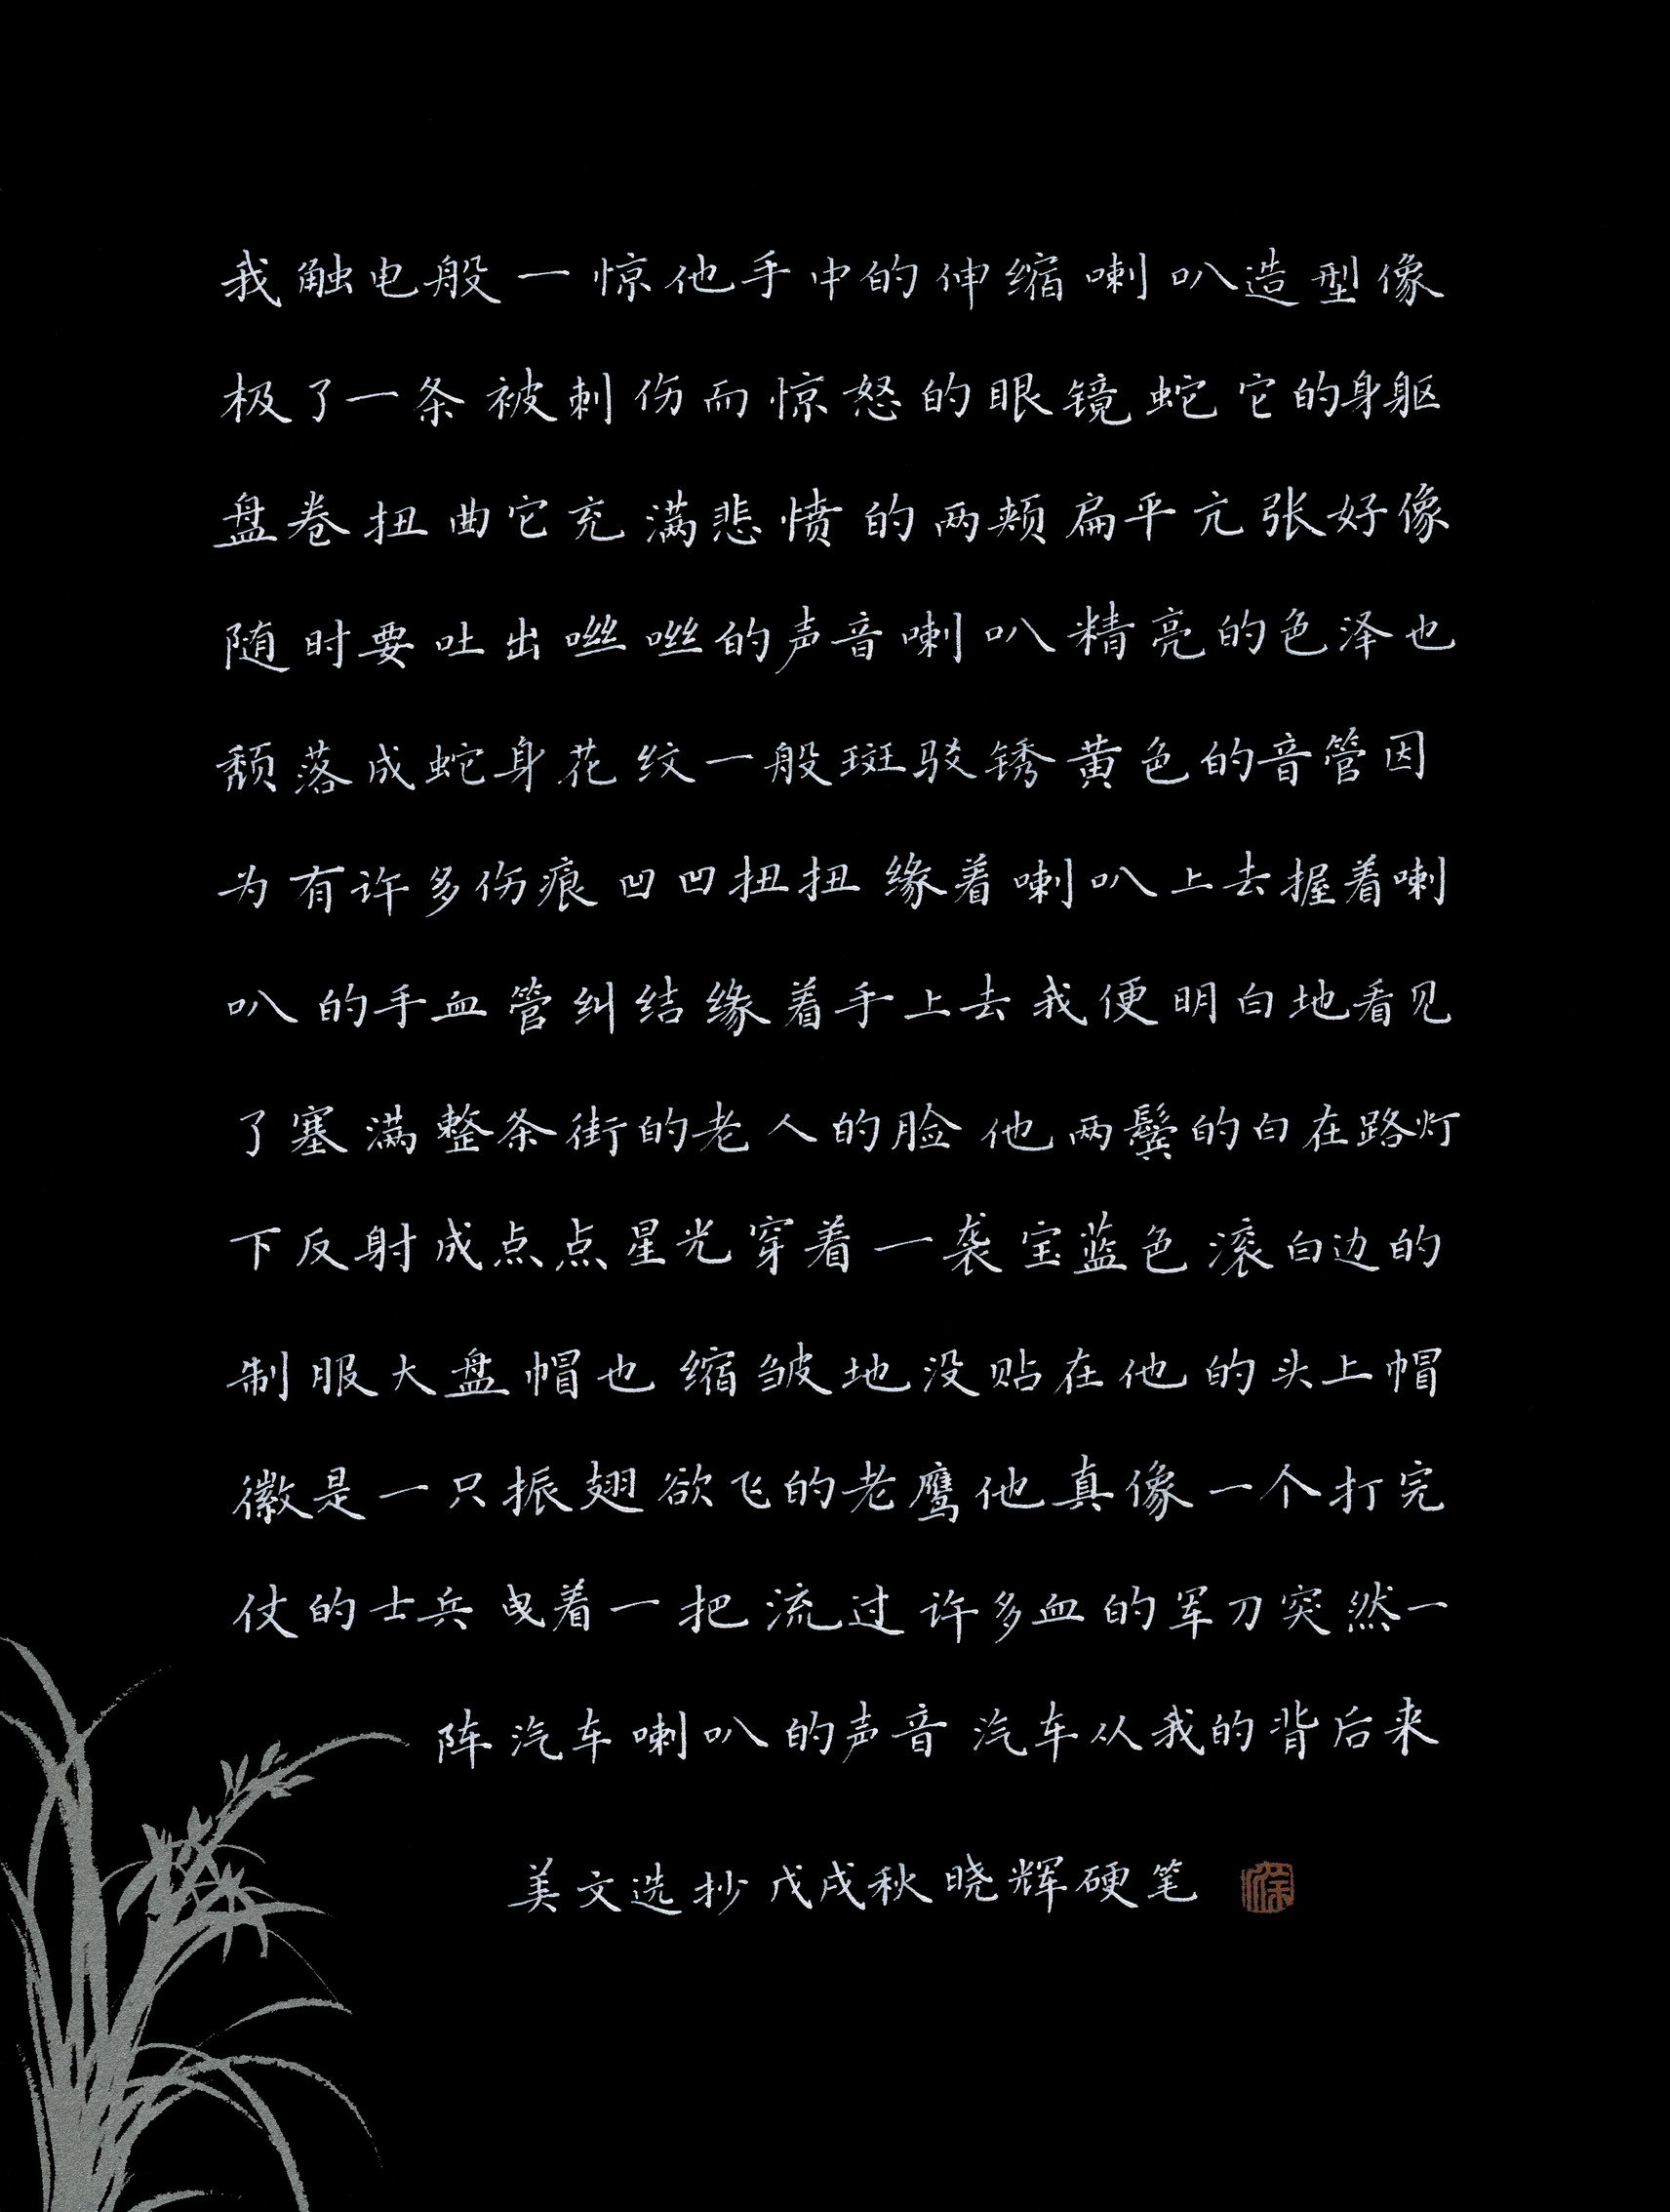 我触电般一惊他手中的伸缩喇叭造型像
极了一条被刺伤而惊怒的眼镜蛇它的身躯
盘卷扭曲它充满悲愤的两颊扁平亢张好像
随时要吐出咝咝的声音喇叭精亮的色泽也
颓落成蛇身花纹一般斑驳锈黄色的音管因
为有许多伤痕凹凹扭扭缘着喇叭上去握着喇
叭的手血管纠结缘着手上去我便明白地看见
了塞满整条街的老人的脸他两鬓的白在路灯
下反射成点点星光穿着一袭宝蓝色滚白边的
制服大盘帽也缩皱地没贴在他的头上帽
徽是一只振翅欲飞的老鹰他真像一个打完
仗的士兵曳着一把流过许多血的军刀突然一
阵汽车喇叭的声音汽车从我的背后来
美文选抄戊戌秋晓辉硬笔